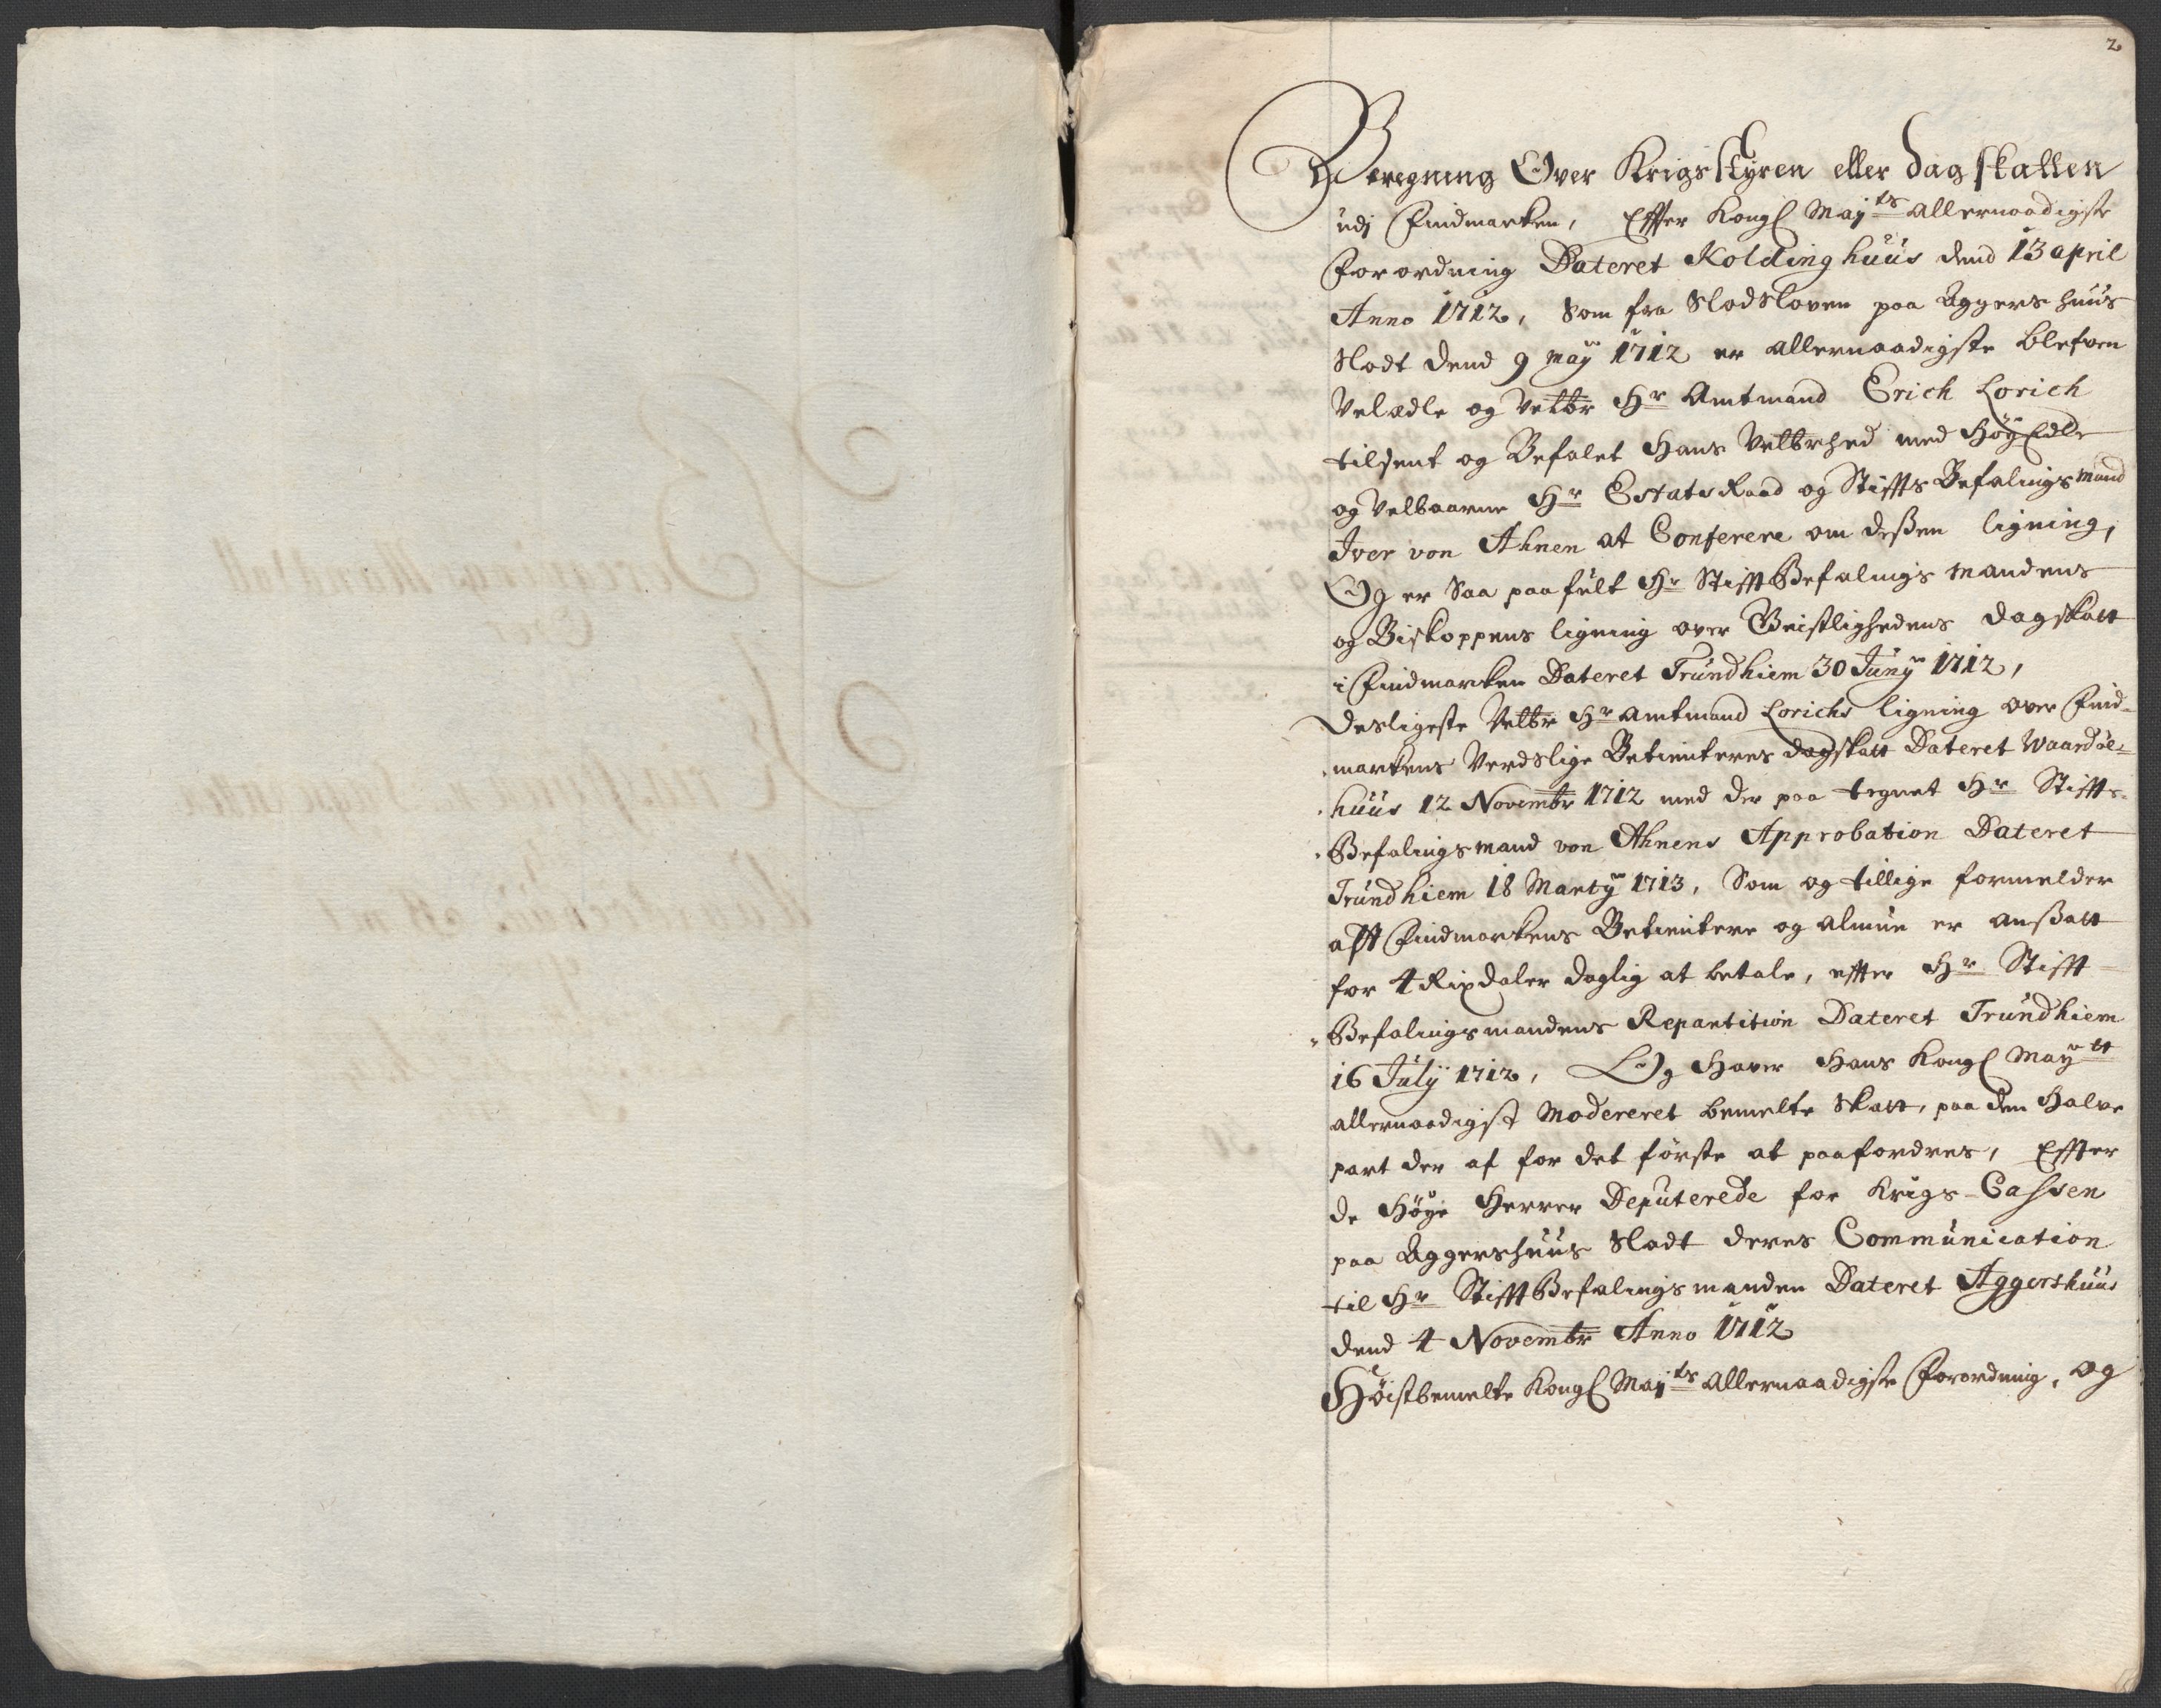 2
Beregning Over Krigsstyren eller dagskatten
udj Findmarken, Effter Kongl Maj:ts allernaadigste
Forordning Dateret Koldinghuus dend 13 april
Anno 1712, Som fra Slodsloven paa Aggershuus
Slodt dend 9 may 1712 er allernaadigste blefven
Velædle og Velbr Hr Amtmand Erich Lorich
tilsent og Befalet Hans Velbrhed med HøyEdle
og Velbaarne Hr EstatsRaad og Stiffts Befalingsmand
Iver von Ahnen at Conferere om dessen ligning,
Og er Saa paafult Hr StifftBefalingsmandens
og Biskoppens ligning over Geistlighedens dagskatt
i Findmarken Dateret Trundhiem 30 Juny 1712,
desligeste Velbr Hr Amtmand Lorichs ligning over Find-
markens Verdslige Betienteres dagskatt Dateret Waardøe-
huus 12 Novembr 1712 med der paa tegnet Hr Stiffts-
Befalingsmand von Ahnens Approbation Dateret
Trundhiem 18 Marty 1713, Som og tillige formelder
att Findmarkens Betientere og almue er ansatt
for 4 Rixdaler daglig at betale, effter Hr Stifft
Befalingsmandens Repartition Dateret Trundhiem
16 July 1712, Og Haver Hans Kongl May:tt
allernaadigst Modereret bemelte Skatt, paa den Halve
part der af for det første at paafordres, Effter
de Høye Herrer Deputerede for Krigs-Cassen
paa Aggershuus Slodt deres Communication
til Hr StifftBefalingsmanden Dateret Aggershuus
dend 4 Novembr Anno 1712
Høistbemelte Kongl Maj:ts allernaadigste Forordning, og